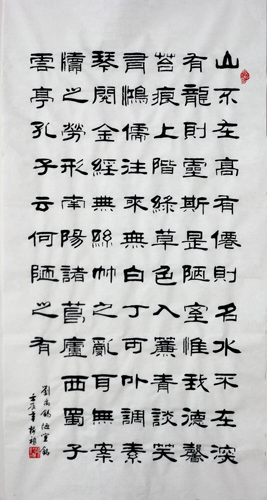 山不在高有僊則名水不在深
有龍則靈斯是陋室惟我德馨
苔痕上階綠草色入簾青談笑
有鴻儒往來無白丁可以調素
琴閱金經無絲竹之亂耳無案
牘之勞形南陽諸葛廬西蜀子
雲亭孔子云何陋之有
劉禹錫陋室銘